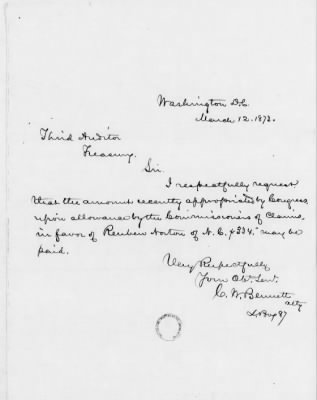 Washington D.C.
March 12. 1873.
Third Auditor
Treasury.
Sir.
I respectfully request
that the amount recently appropriated by Congress
upon allowance by the Commissioners of Claims,
in favor of Reuben Norton of N.C. $334, may be
paid.
Very Respectfully
Your Obt. Servt.
C. W. Bennett
atty
Box 87